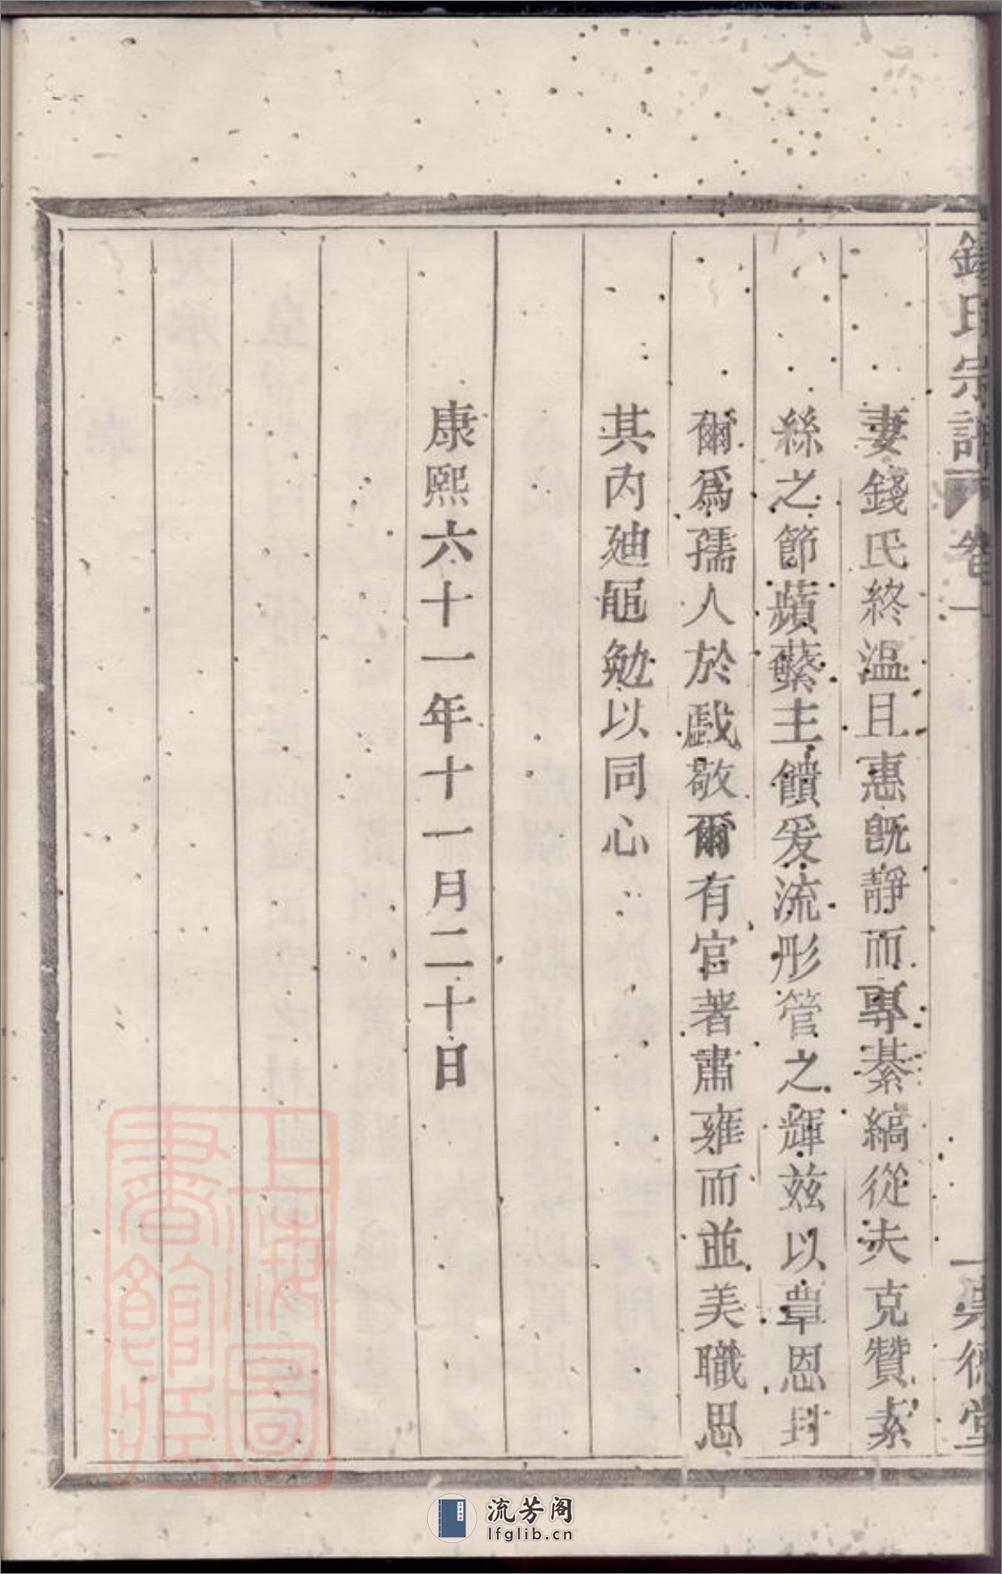 錢氏宗譜 卷一 崇德堂
妻錢氏終溫且惠旣靜而專綦縞從夫克贊素
絲之節蘋蘩主饋爰流彤管之輝玆以覃恩封
爾爲孺人於戲敬爾有官著肅雍而並美職思
其內廸黽勉以同心
康熙六十一年十一月二十日
上海圖書館藏
流芳阁
lfglib.cn